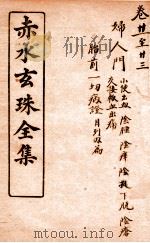 卷廿至廿三
婦人門
小便出血 陰腫 陰痒 陰挺下脱 陰瘡
交接輒血出痛
胎前一切病證 月列如扁
赤水玄珠全集